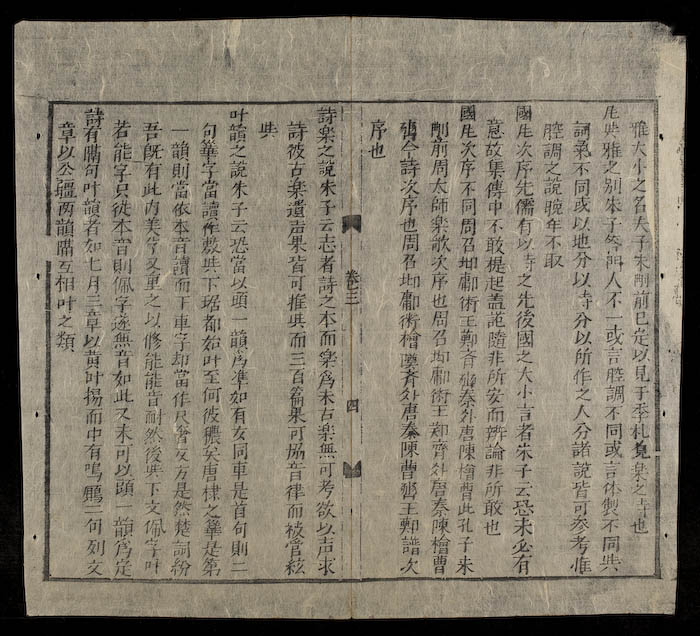 雅大小之名夫子未刪前已定以見于季札覌楽之寺也
風典雅之别朱子答門人不一或言腔調不同或言体製不同典
詞氣不同或以地分以寺分以所作之人分諸說皆可参考惟
腔調之說晚年不取
國風次序先儒有以寺之先後國之大小言者朱子云恐未必有
意故集傳中不敢提起盖詭隨非所安而辨論非所敢也
國風次序不同周召邶鄘衛王鄭斉豳秦唐陳檜曹此孔子未
刪前周太師楽歌次序也周召邶鄘衛王鄭齊唐秦陳檜曹
豳今詩次序也周召邶鄘衛檜斉唐秦陳曹豳王鄭譜次
序也
卷之三
四
詩楽之說朱子云志者詩之本而楽爲末古楽無可考欲以声求
詩彼古楽遺声果皆可推典而三百篇果可協音律而被管絃
典
叶韻之說朱子云恐當以頭一韻爲準如有女同車是首句則二
句華字當讀作敷典下琚都始叶至何彼穠矣唐棣之華是第
一韻則當依本音讀而下車字却當作尺奢反方是然楚詞紛
吾既有此内美兮又重之以修能能音耐然後典下文佩字叶
若能字只從本音則佩字遂無音如此又未可以頭一韻爲定
詩有隔句叶韻者如七月三章以黄叶揚而中有鳴鵙二句列文
章以公疆両韻隔互相叶之類